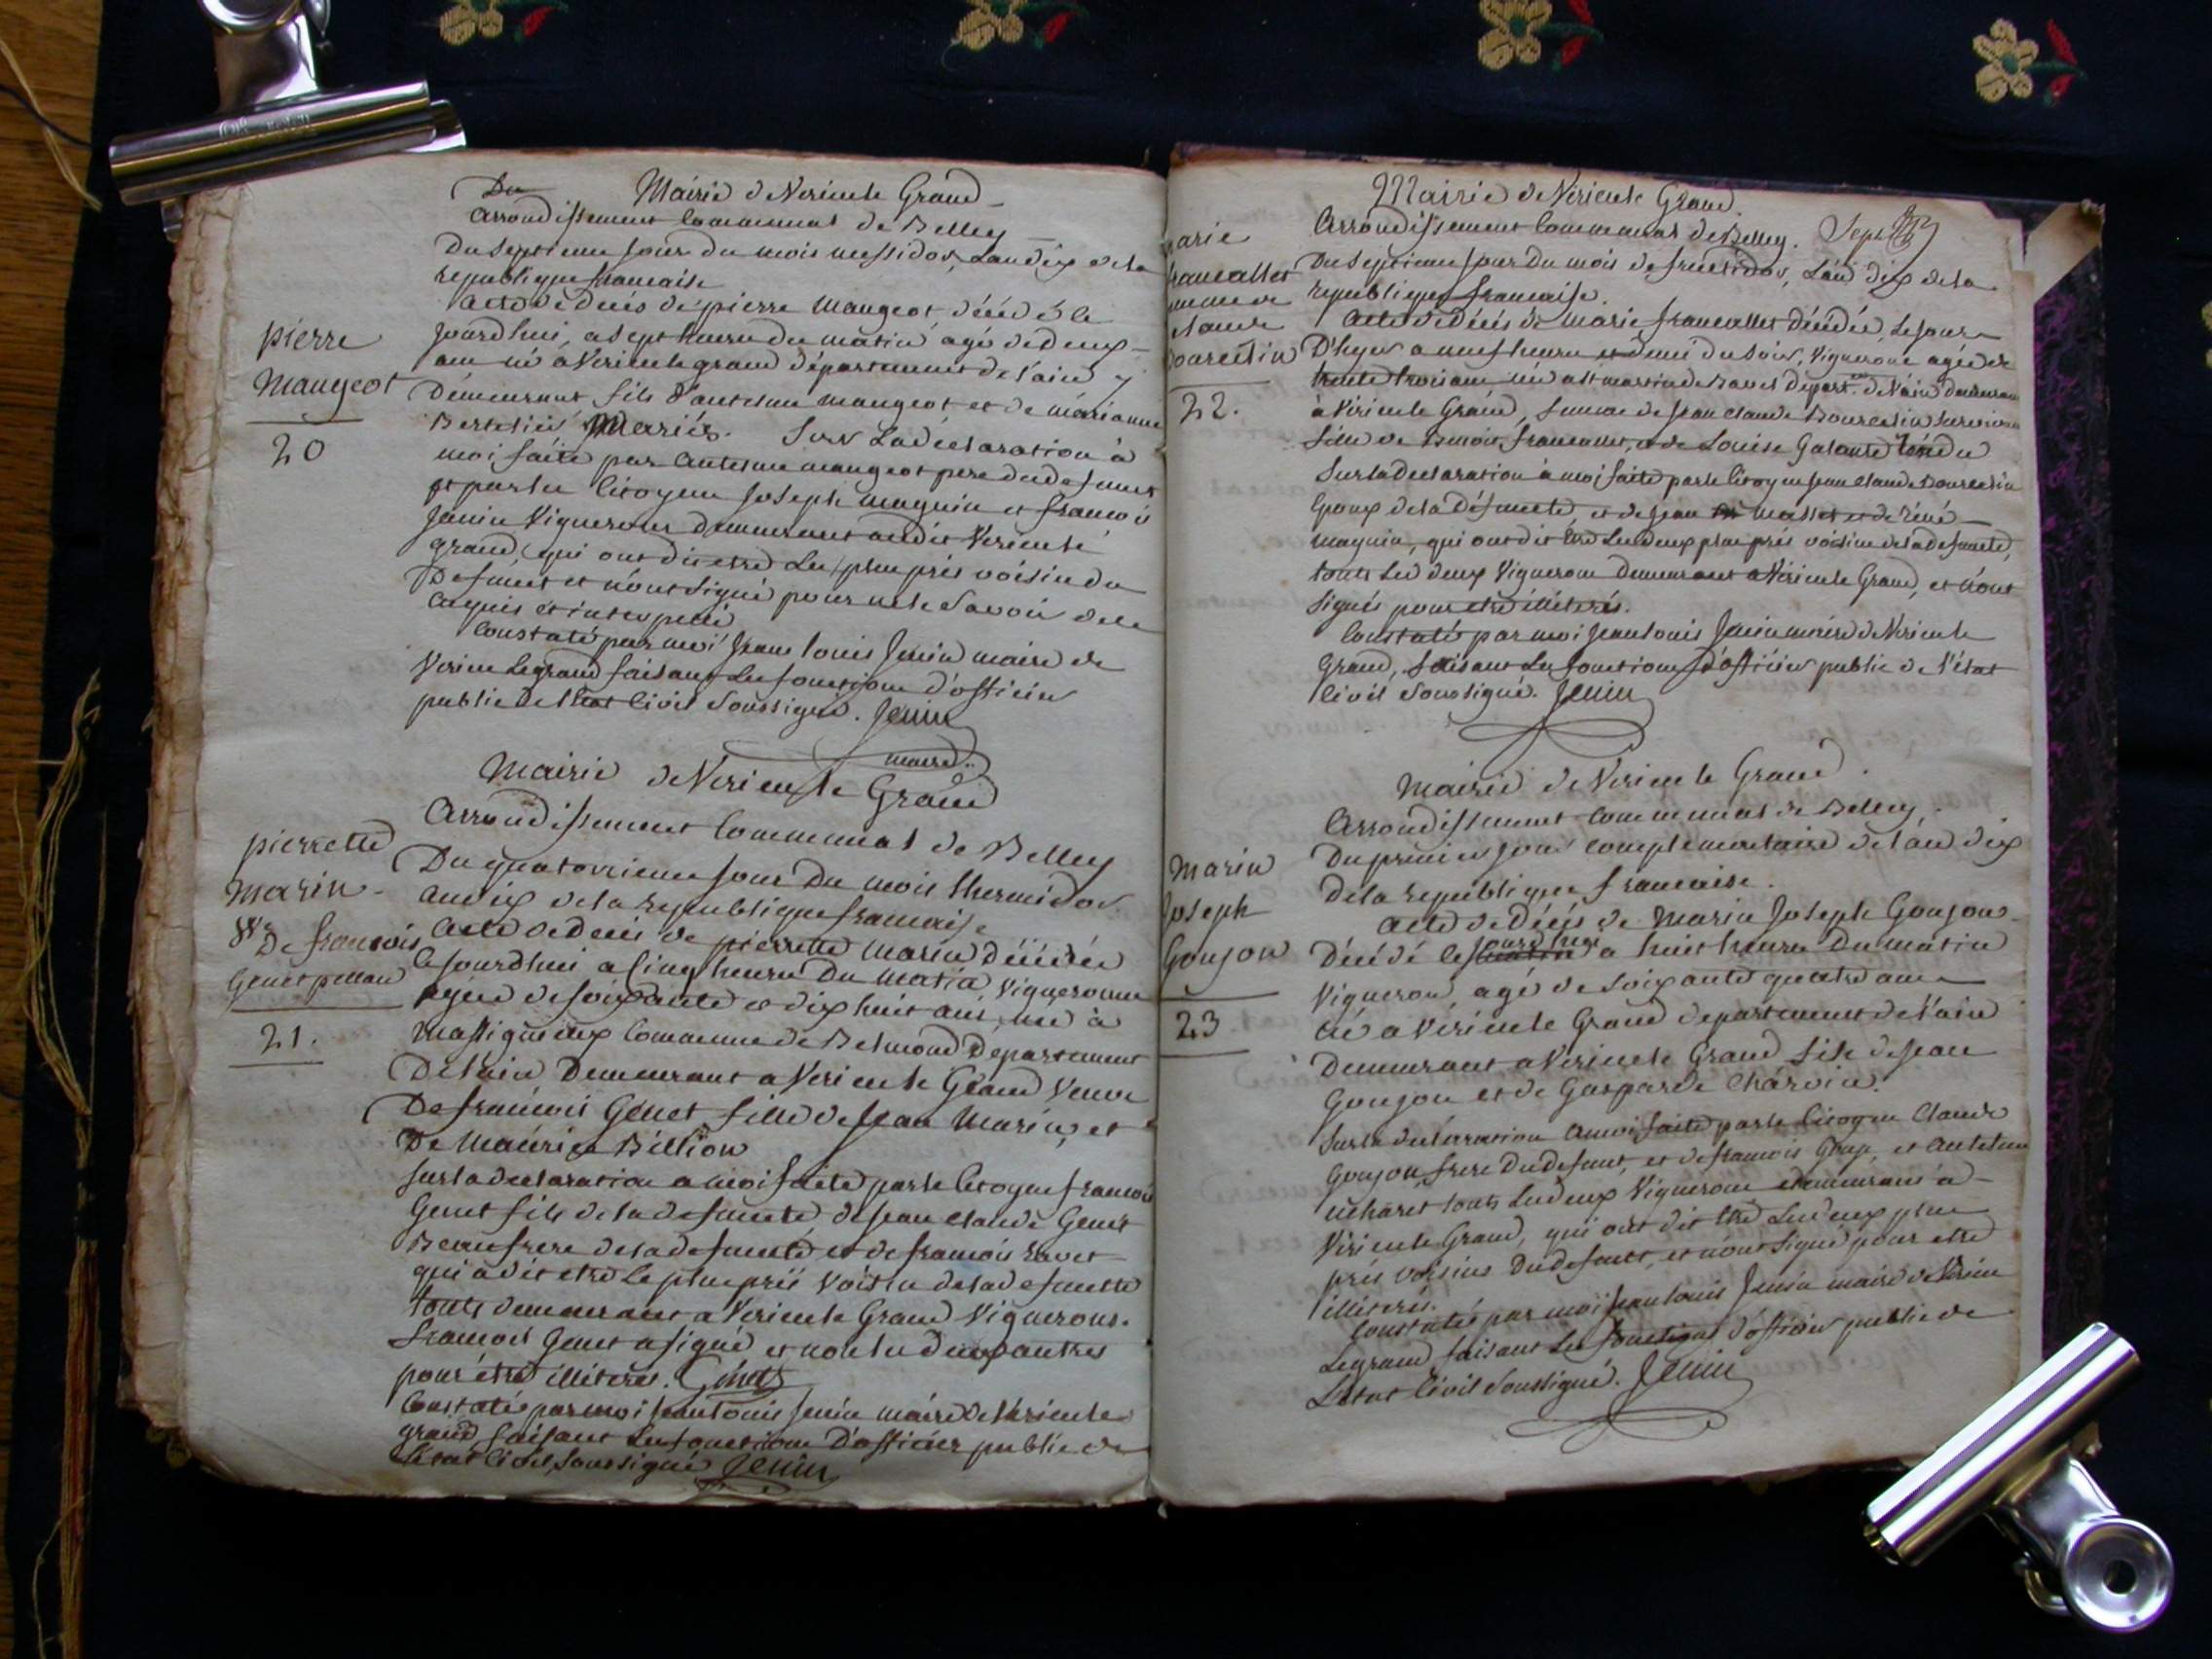 Du Mairie de Virieu le Grand
arrondissement Communal de Belley
Du septieme jour du mois messidor, Lan dix de la
republique francaise
acte de décés de pierre Mangeot décédé le
jourdhui, a sept heures du matin agé de deux
ans né a Virieu le grand département de l'ain y
Demeurant fils d'antelme mangeot et de marianne
Bertelié Mariés. Sur La déclaration à
moi faite par antelme mangeot pere du defunt
et par les Citoyens Joseph magnin et francois
Janin Vignerons demeurant audit Virieu le
grand qui ont dit etre Les plus prés voisin du
Defunt et n'ont signé pour ne le savoir de ce
enquis et interpellé
Constaté par moi Jean louis Jenin maire de
Virieu Le grand faisant Les fonctions d'officier
public de l'état Civil Soussigné. Jenin
maire
pierre
Mangeot
20
Mairie de Virieu le Grand
Arrondissement Communal de Belley
Du quatorzieme jour Du mois thermidor
an dix de la republique francaise
acte de décés de pierrette Marin décédée
le jourdhui a Cinq heures Du matin, Vigneronne
agée de soixante et dix huit ans, née à
Massignieux Commune de Belmond Departement
De l'ain Demeurant a Virieu le Grand Veuve
De francois Genet fille de Jean Marin, et
De Maurise Billion
Sur la declaration a moi faite par le Citoyen francois
Genet fils de la defunte de Jean claude Genet
Beaufrere de la defunte et de francois ravet
qui a dit etre Le plus prés Voisin de la defunte
touts demeurant a Virieu le Grand Vignerons.
francois Genet a signé et non les deux autres
pour être illiterés. Genet
Constaté par moi Jean louis Jenin maire de Virieu le
grand faisant Les fonctions D'officier public de
L'état Civil, Soussigné Jenin
pierrette
Marin
De francois
Genet
21.
Mairie de Virieu le Grand.
Arrondissement Communal de Belley. Sept
Du septieme jour Du mois de fructidor, L'an dix de la
republique francaise.
acte de Décés de Marie francallet Décédée, Le jour
D'hyer a neuf heures et demi du Soir, Vigneronne agée de
trente trois ans née a St martin de Bavel Depart. de l'ain Demeurant
à Virieu le Grand, femme de Jean claude Bourcelin Survivant
fille de Benoit francallet, et de Louise Galante
Sur la déclaration à moi faite par le Citoyen Jean claude Bourcelin
Epoux de la Défunte et de Jean Masset et de Réné
magnin, qui ont dit être Les deux plus prés voisins de la defunte,
touts Les deux Vignerons Demeurant a Virieu le Grand, et n'ont
signés pour etre illiterés.
Constaté par moi Jean louis Jenin maire de Virieu le
Grand, faisant Les fonctions d'officier public de l'état
Civil Soussigné. Jenin
arie
francallet
femme de
claude
Bourcelin
22.
Mairie de Virieu le Grand.
Arrondissement Communal de Belley.
Du premier jour complementaire de l'an dix
De la republique francaise.
acte de Décés de Marin Joseph Goujon
Décédé le jourd'huy a huit heures Du matin
Vigneron, agé de soixante quatre ans
né a Virieu le Grand département de l'ain
Demeurant a Virieu le Grand fils de Jean
Goujon et de Gasparde Charvin.
Sur la declaration a moi faite par le Citoyen Claude
Goujon, frere Du defunt, et de francois Goup, et antelme
touts Les deux Vignerons demeurans à
Virieu le Grand, qui ont dit être Les deux plus
prés voisins Du defunt, et n'ont signé pour etre
illiterés.
Constaté par moi Jean louis Jenin maire de Virieu
Le grand faisant Les fonctions d'officier public de
L'état Civil Soussigné. Jenin
Marin
Joseph
Goujon
23